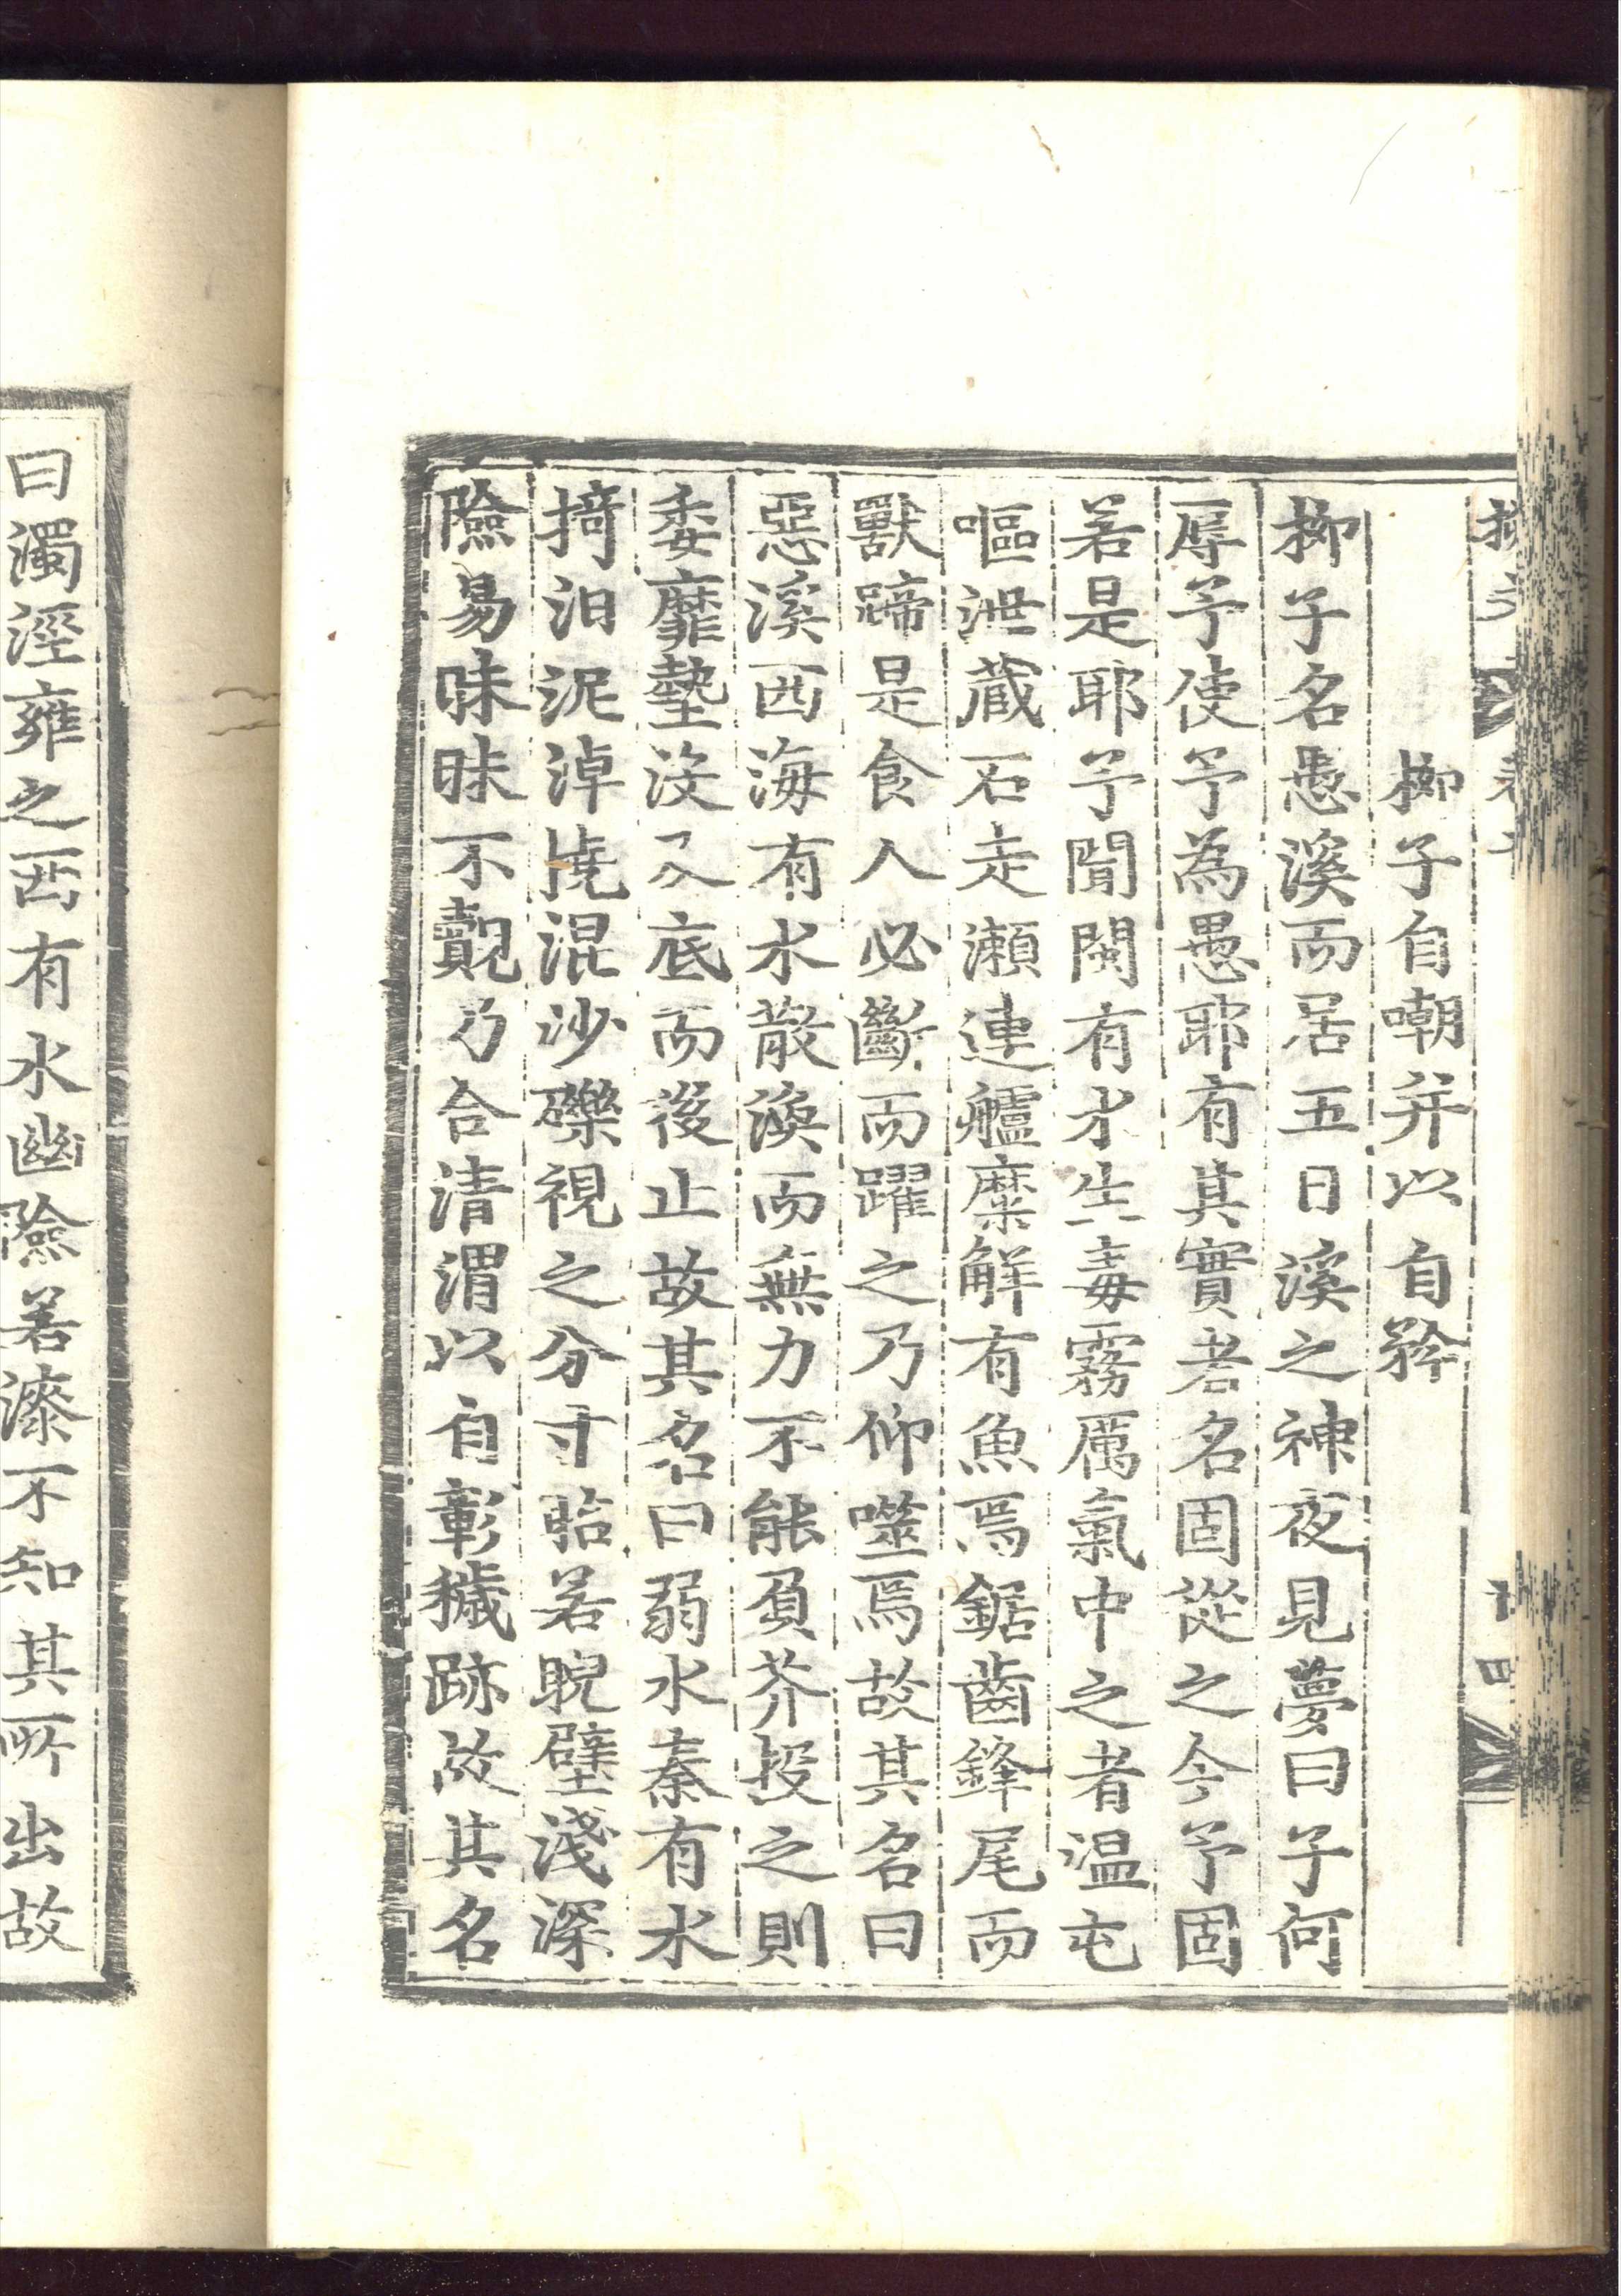 柳子自嘲并以自矜
柳子名愚溪而居五日溪之神夜見夢曰子何
辱予使予為愚耶有其實者名固從之今予固
若是耶予聞閩有水生毒霧厲氣中之者温屯
嘔泄藏石走瀬連艫糜解有魚焉鋸齒鋒尾而
獸蹄是食人必斷而躍之乃仰噬焉故其名曰
惡溪西海有水散渙而無力不能負芥投之則
委靡墊沒及底而後止故其名曰弱水秦有水
掎汩泥淖撓混沙礫視之分寸眙若睨壁淺深
險易昧昧不覿乃合清渭以自彰穢跡故其名
曰濁涇雍之西有水幽險若漆不知其所出故